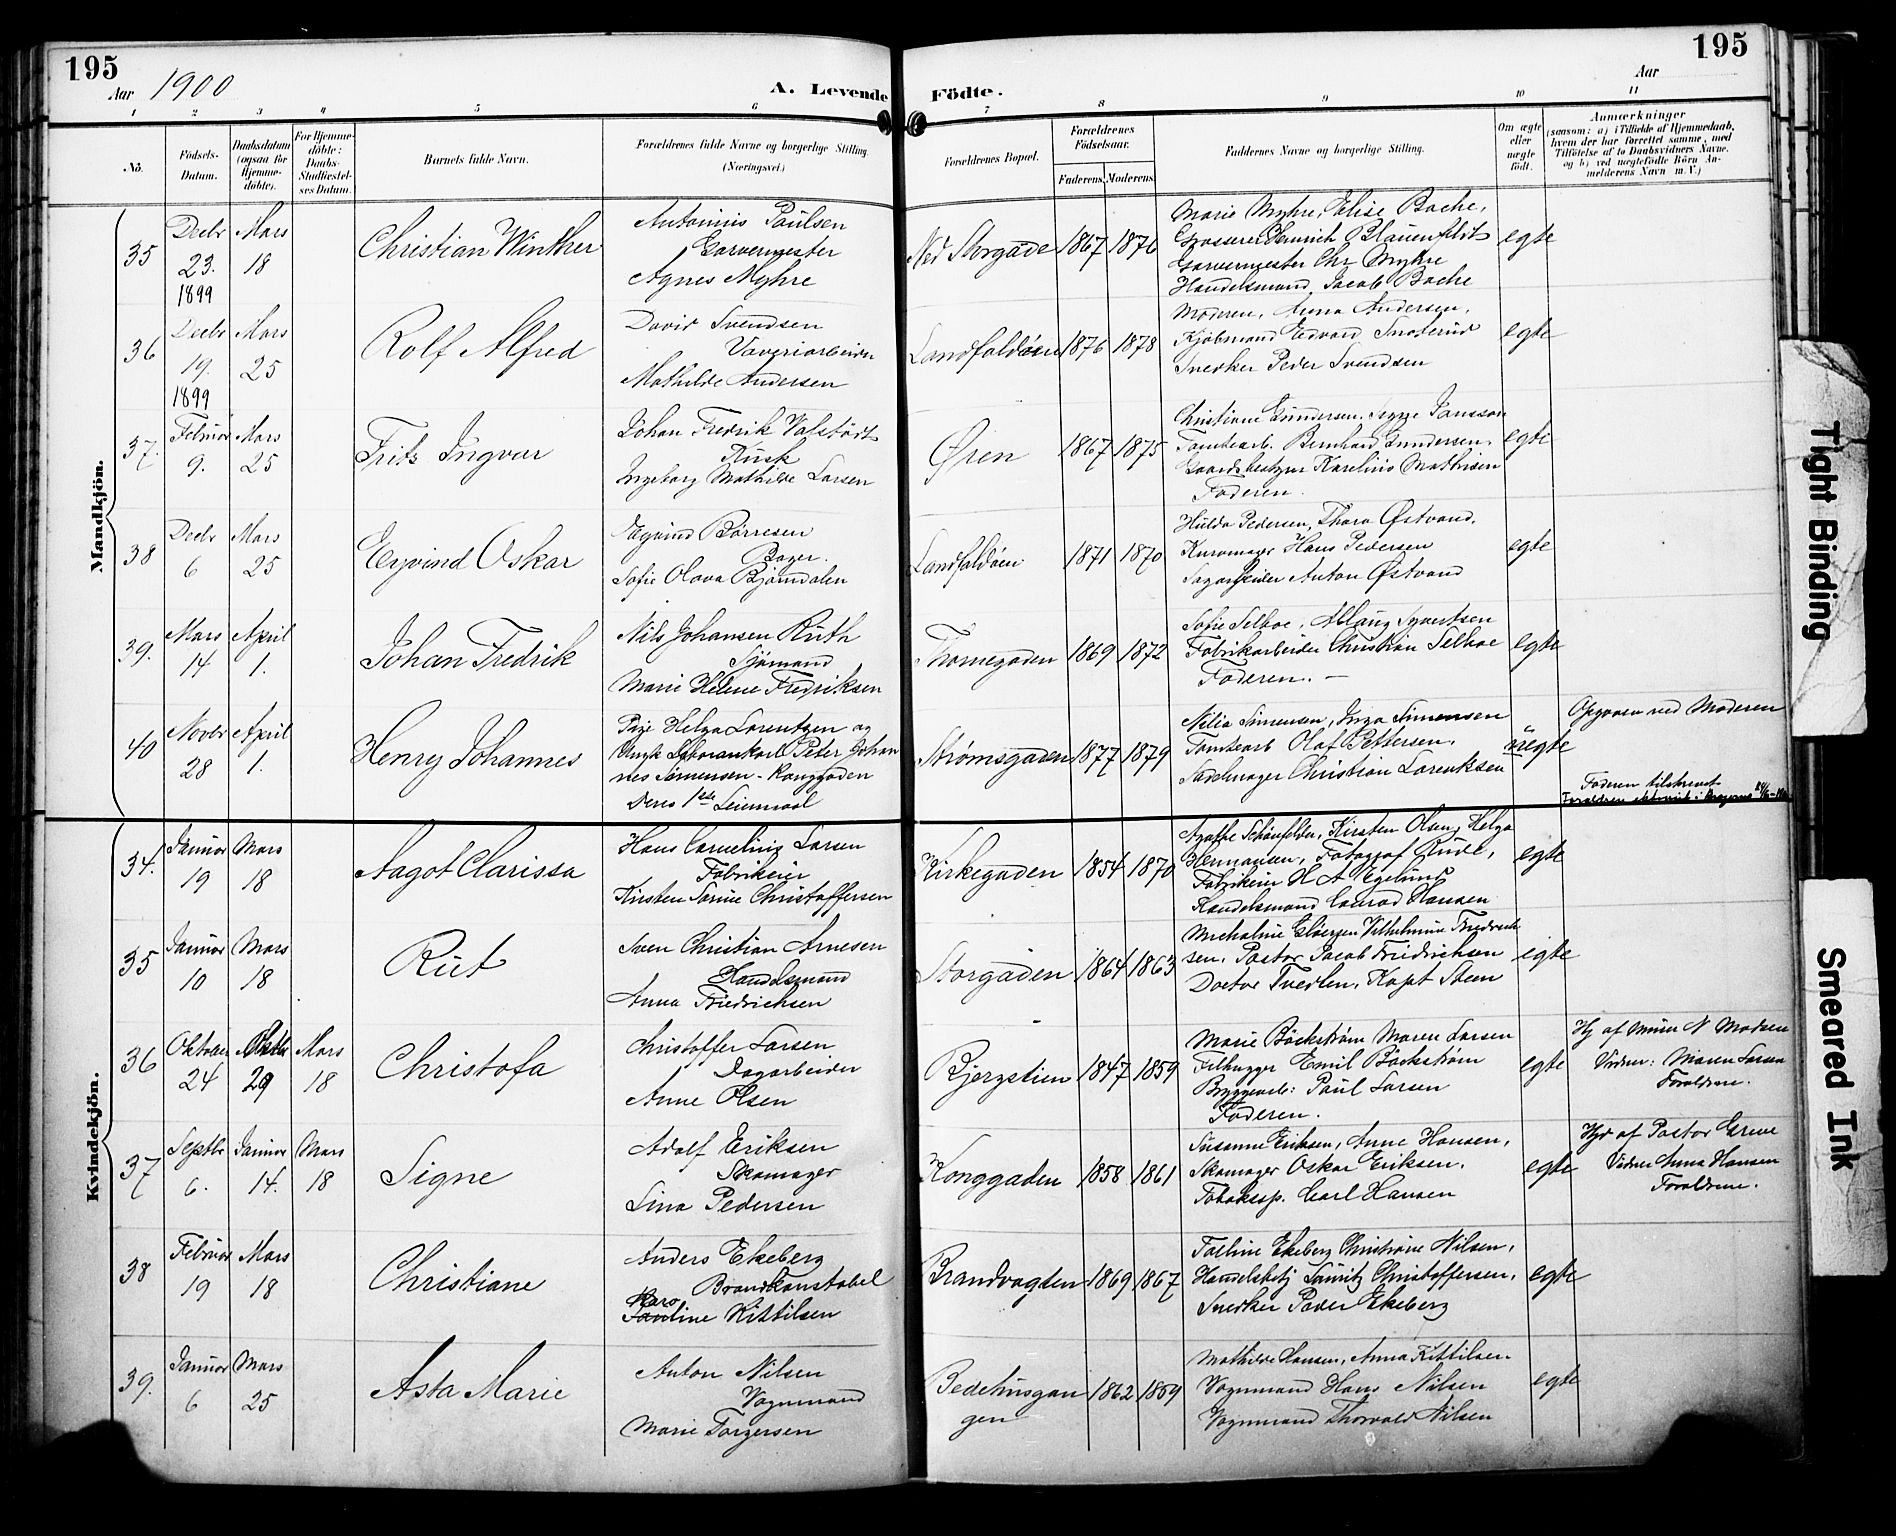 195
Aar 1900
A. Levende Födte.
Aar
195
1 2 3 4 5 6 7 8 9 10 11
No.
Födsels-Datum.
Daabsdatum (ogsaa for Hjemme-döbte).
For Hjemme-döbte: Daabs-Stadfæstel-ses Datum.
Barnets fulde Navn.
Forældrenes fulde Navne og borgerlige Stilling (Næringsvei.)
Forældrenes Bopæl.
Forældrenes Födselsaar.
Faderens. Moderens.
Faddernes Navne og borgerlige Stilling.
Om ægte eller uægte födt.
Anmærkninger
(saasom: a) i Tilfælde af Hjemmedaab, hvem der har forrettet samme, med Tilföielse af to Daabsvidners Navne, og b) ved uægtefödte Börn Anmelderens Navn m. V.)
Mandkjön.
35 Decbr 23. 1899 Mars 18
Christian Winther
Antonius Paulsen
Garvermester
Agnes Myhre
Ned Storgade 1867 1876
Marie Myhre, Elise Bache,
Grosserer Heinrich Blauenfeldt
Garvermester Chr Myhre
Handelsmand Jacob Bache
egte
36 Decbr 19. 1899 Mars 25
Rolf Alfred
David Svendsen
Væveriarbeider
Mathilde Andersen
Landfaldöen 1876 1878
Moderen, Anna Andersen,
Kjöbmand Edvard
Snedker Peder Svendsen
egte
37. Februar 9. Mars 25
Frits Ingvar
Johan Fredrik
Kusk
Ingeborg Mathilde Larsen
Øren 1867 1875
Christiane Gundersen, Signe Jansson
Tomtearb. Bernhard Gundersen.
Gaardsbestyrer Karelius Mathisen
Faderen.
egte
38 Decbr 6 Mars 25
Eyvind Oskar
Børresen
Bager.
Sofie Olava Bjørndalen
Landfaldöen 1871 1870
Hulda Pedersen, Thora Østvand,
Kurvmager Hans Pedersen
Sagarbeider Anton Østvand
egte
39. Mars 14 April 1.
Johan Fredrik
Nils Johansen Ruth
Sjömand
Marie Helene Fredriksen
Thornegaden 1869 1872
Sofie Selboe, Aslaug Syvertsen
Fabrikarbeider Christian Selboe
Faderen. —
egte
40 Novbr 28 April 1.
Henry Johannes
Pige Helga Lorentzen og
Ungk Peter Johan
nes Simensen - Konggaden
Deres 1ste Leiermaal
Strömsgaden 1877 1879
Nilia Simensen, Inga Simensen
Tomtearb Olaf Pettersen.
Sadelmager Christian Lorentsen
uegte
Opgaven ved Moderen
Faderen tilskrevet
Kvindekjön.
34. Januar 19 Mars 18
Aagot Clarissa
Hans Cornelius Larsen
Fabrikeier
Kirsten Sarine Christoffersen
Kirkegaden 1854 1870
Agathe Schönfelder, Kirsten Olsen, Helga
Hermansen, Fotograf Rude,
Fabrikeier H A Egelund
Handelsmand Conrad Hansen
egte
35 Januar 10 Mars 18
Rut
Sven Christian Arnesen
Handelsmand
Anna Friedrichsen
Storgaden 1864 1863
Vilhelmine Friedrich
sen, Pastor Jacob Friedrichsen
Doctor Tvedten, Kapt Steen
egte
36 Oktober 24 Oktbr 29 Mars 18
Christofa
Christoffer Larsen
Dagarbeider
Anne Olsen
Bjergstien 1847 1859
Marie Böckström Maren Larsen
Filhugger Emil Böckström
Bryggearb: Paul Larsen
Faderen.
egte
Hj af N Madsen
Vidner: Maren Larsen
Foraldrene.
37 Septbr 6. Januar 14. Mars 18
Signe
Adolf Eriksen
Skomager
Lina Pedersen
Konggaden 1858 1861
Susanne Eriksen, Anne Hansen,
Skomager Oskar Eriksen,
Tobakssp. Carl Hansen
egte
Hjd af Pastor Greve
Vidner Anna Hansen
Foraldrene.
38 Februar 19 Mars 18
Christiane
Anders Ekeberg
Brandkonstabel
Karo
line Kittilsen
Brandvagten 1869 1867
Ekeberg Christiane Nilsen,
Handelsbetj Lauritz Christoffersen,
Snedker Peder Ekeberg
egte
39. Januar 6 Mars 25
Asta Marie
Anton Nilsen
Vognmand
Marie Torgersen
Bedehusgan
gen 1862 1859
Mathilde Hansen, Anna Kittilsen
Vognmand Hans Nilsen
Vognmand Thorvald Nilsen
egte
Tight Binding
Smeared Ink